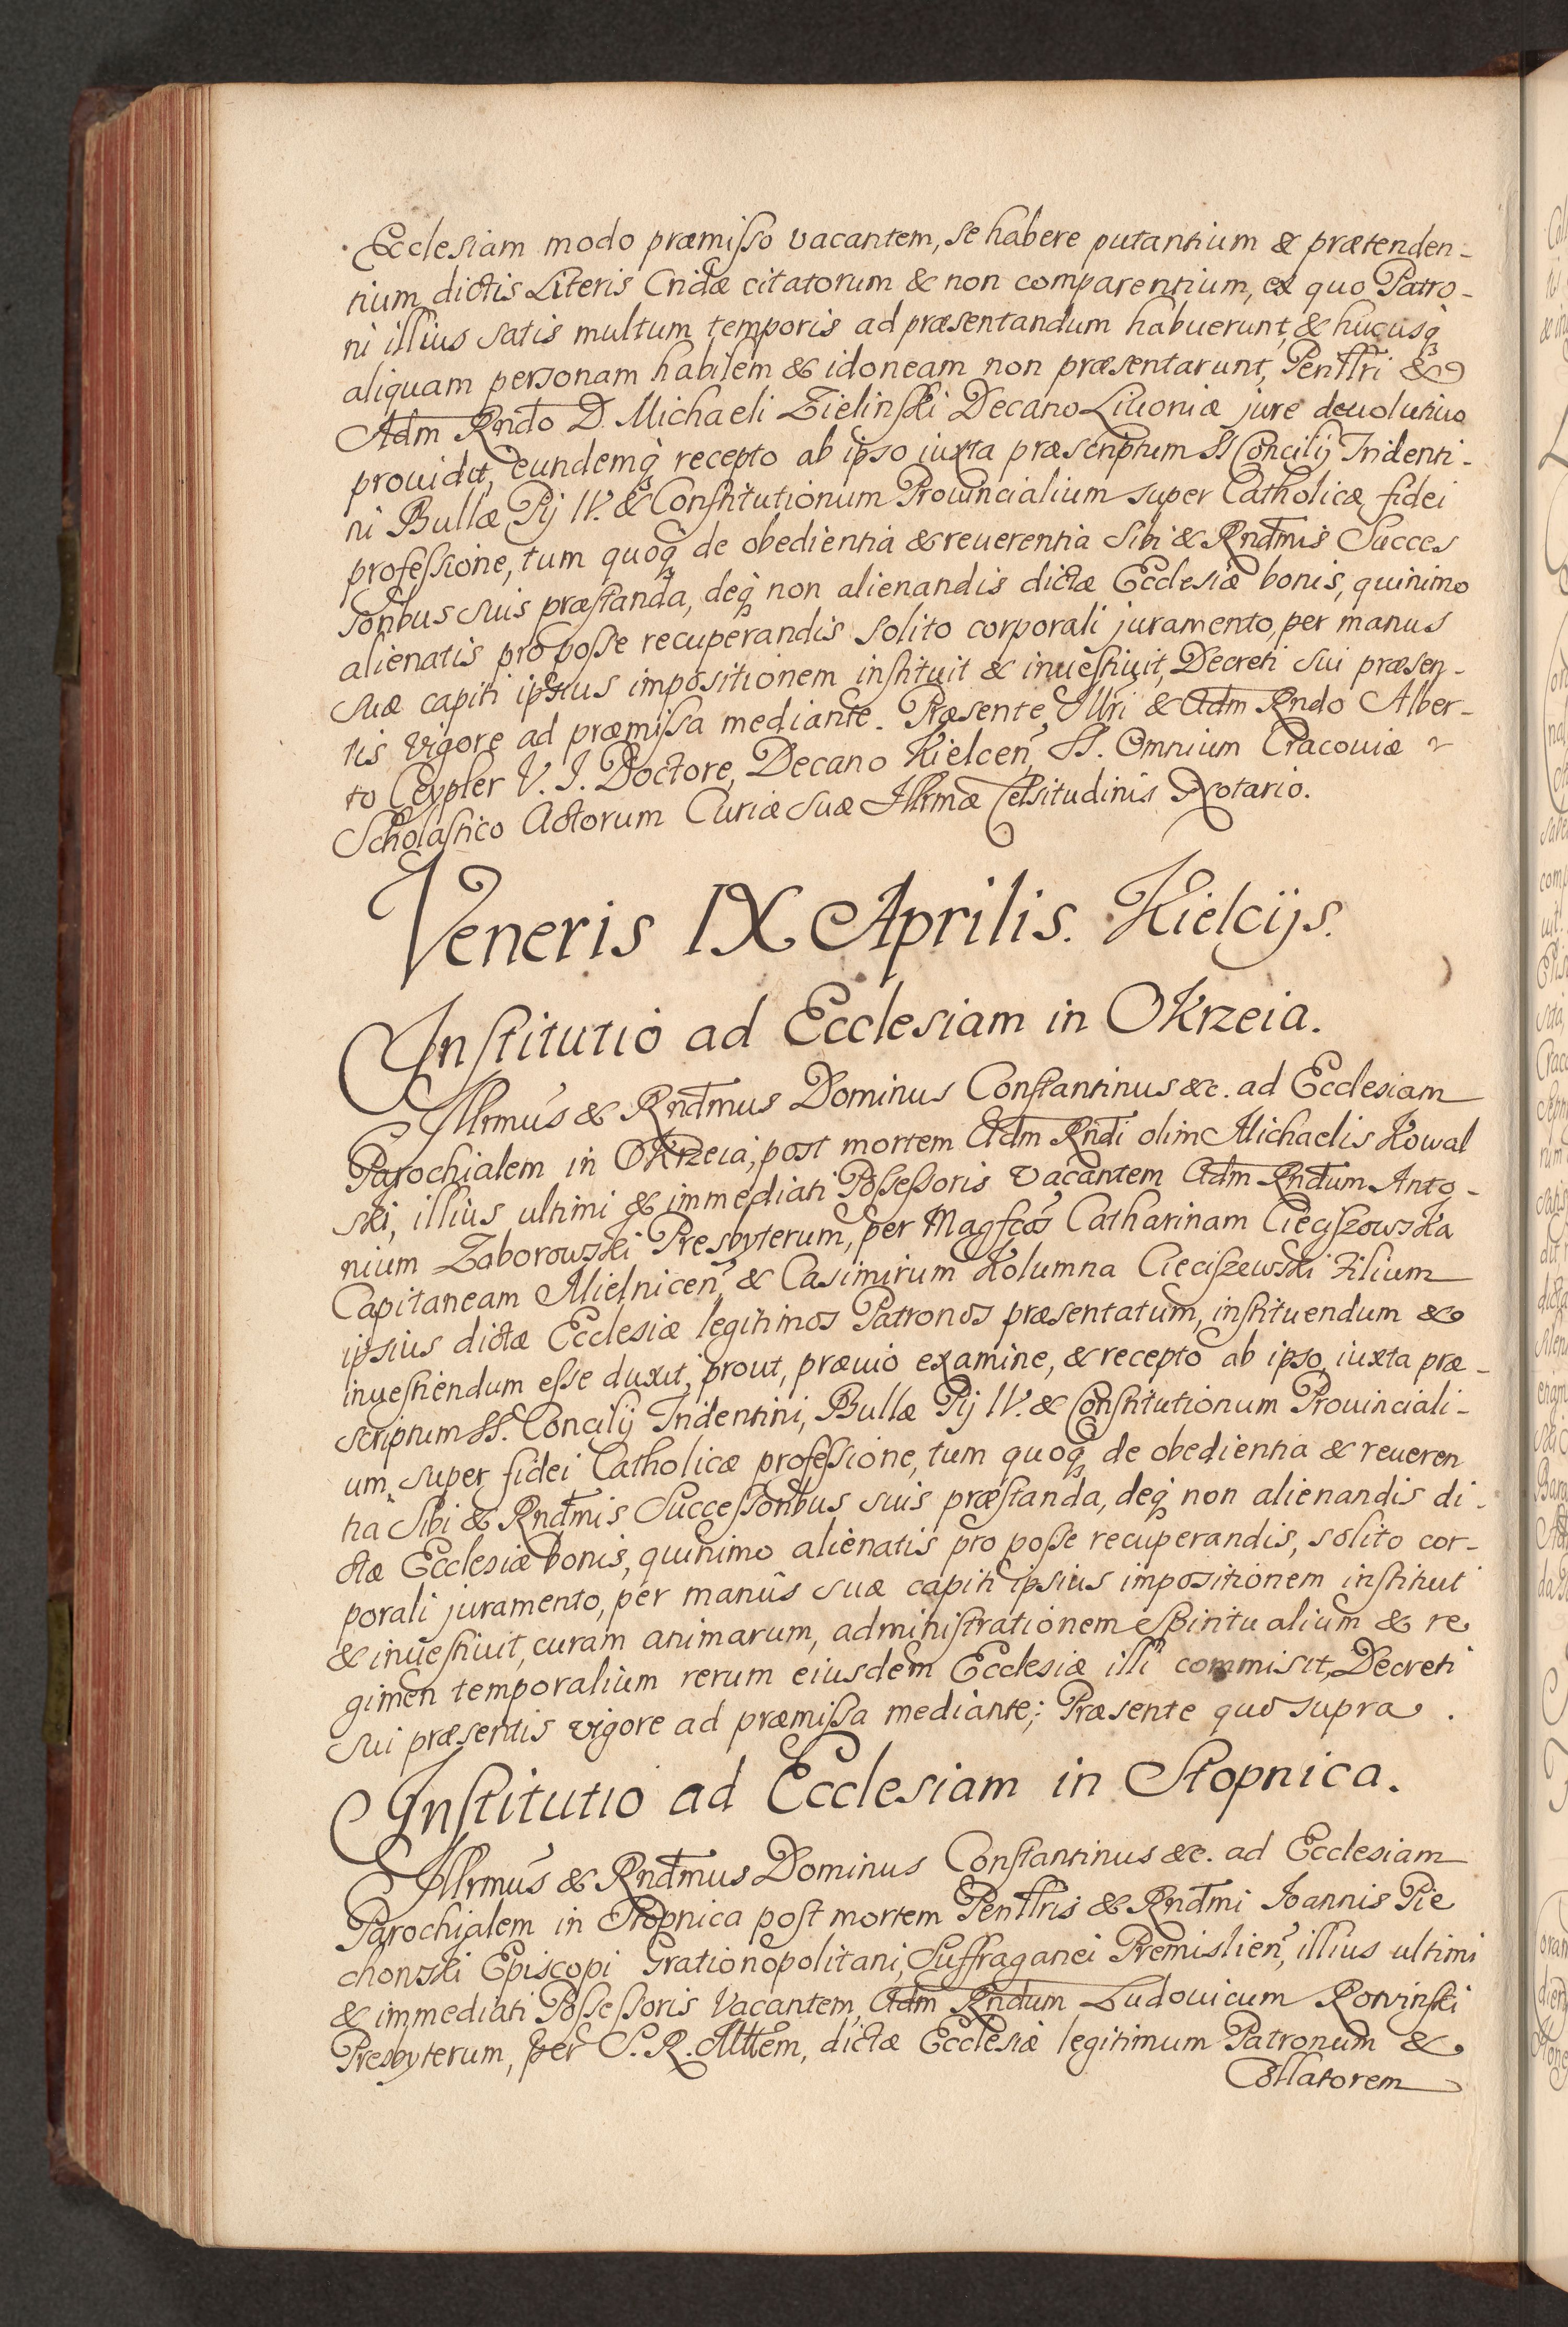 Ecclesiam modo præmisso vacantem, se habere putantium & prætenden-
tium dictis Literis Cridæ citatorum & non comparentium, ex quo Patro-
ni illius satis multum temporis ad præsentandum habuerunt, & hucusq́
aliquam personam habilem & idoneam non præsentarunt, Penllri &
Adm Rndo D. Michaeli Zielinski Decano Livoniæ jure devolutivo
providit, eundemq́ recepto ab ipso iuxta præscriptum SS Concilij Tridenti-
ni Bullæ Pij IV. & Constitutionum Provincialium super Catholicæ fidei
professione, tum quoq́ de obedientia & reverentia Sibi & Rndmis Succes
soribus suis præstanda, deq́ non alienandis dictæ Ecclesiæ bonis, quinimo
alienatis pro posse recuperandis solito corporali juramento, per manus
suæ capiti ipsius impositionem instituit & investivit, Decreti sui præsen-
tis vigore ad præmissa mediante. Præsente Illri & Adm Rndo Alber-
to Ceypler V. I. Doctore, Decano Kielcen̄, SS. Omnium Cracoviæ
Scholastico Actorum Curiæ Suæ Illrmæ Celsitudinis Notario.
Veneris IX Aprilis. Kielcijs.
Institutio ad Ecclesiam in Okrzeia.
Illrmus & Rndmus Dominus Constantinus &c. ad Ecclesiam
Parochialem in Okrzeia, post mortem Adm Rndi olim Michaelis Kowal
ski, illius ultimi & immediati Possessoris vacantem Adm Rndum Anto-
nium Zaborowski Presbyterum, per Magfcos Catharinam Cieciszowska
Capitaneam Mielnicen̄, & Casimirum Kolumna Cieciszewski Filium
ipsius dictæ Ecclesiæ legitimos Patronos præsentatum, instituendum &
investiendum esse duxit, prout, prævio examine, & recepto ab ipso, iuxta præ-
scriptum SS. Concilij Tridentini, Bullæ Pij IV. & Constitutionum Provinciali-
um, super fidei Catholicæ professione, tum quoq́ de obedientia & reveren
tia Sibi & Rndmis Successoribus suis præstanda, deq́ non alienandis di-
ctæ Ecclesiæ bonis, quinimo alienatis pro posse recuperandis, solito cor-
porali juramento, per manûs suæ capiti ipsius impositionem instituit
& investivit, curam animarum, administrationem spiritualium & re
gimen temporalium rerum eiusdem Ecclesiæ illi commisit, Decreti
sui præsentis vigore ad præmissa mediante; Præsente quo supra.
Institutio ad Ecclesiam in Stopnica.
Illrmus & Rndmus Dominus Constantinus &c. ad Ecclesiam
Parochialem in Stopnica post mortem Penllris & Rndmi Ioannis Pie
chonski Episcopi Grationopolitani, Suffraganei Premislien̄, illius ultimi
& immediati Possessoris vacantem, Adm Rndum Ludovicum Rowinski
Presbyterum, per S. R. Mttem, dictæ Ecclesiæ legitimum Patronum &
Collatorem